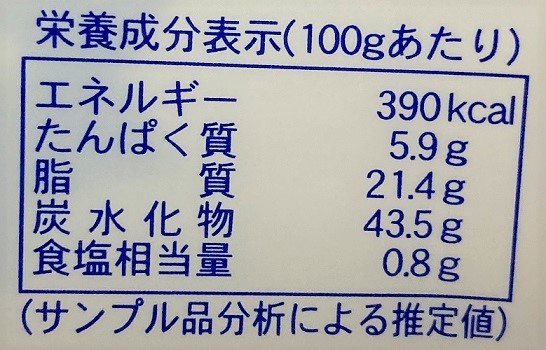 栄養成分表示(100gあたり)
エネルギー 390kcal
たんぱく質 5.9g
脂質 21.4g
炭水化物 43.5g
食塩相当量 0.8g
(サンプル品分析による推定値)